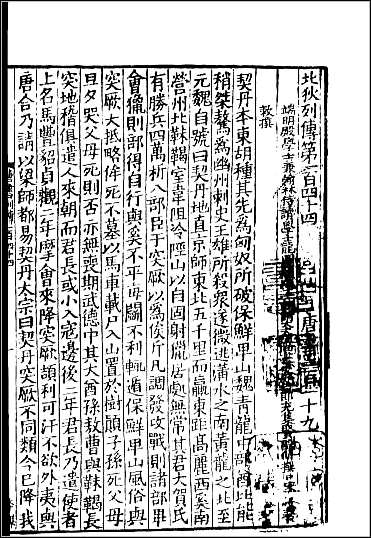 北狄列傳第一百四十四 唐書二百一十九
端明殿學士兼翰林侍讀學士龍
敕撰
契丹本東胡種其先爲匈奴所破保鮮卑山魏青龍中部酋比能
稍桀驁爲幽州刺史王雄所殺衆遂微逃潢水之南黃龍之北至
元魏自號曰契丹地直京師東北五千里而贏東距高麗西奚南
營州北靺鞨室韋阻冷陘山以自固射獵居處無常其君大賀氏
有勝兵四萬析八部臣于突厥以爲俟斤凡調發攻戰則諸部畢
會獵則部得自行與奚不平每鬭不利輒遁保鮮卑山風俗與
突厥大抵略侔死不墓以馬車載尸入山置於樹顛子孫死父母
旦夕哭父母死則否亦無喪期武德中其大酋孫敖曹與靺鞨長
突地稽俱遣人來朝而君長或小入寇邊後二年君長乃遣使者
上名馬豐貂貞觀二年摩會來降突厥頡利可汗不欲外夷與
唐合乃請以梁師都易契丹太宗曰契丹突厥不同類今已降我